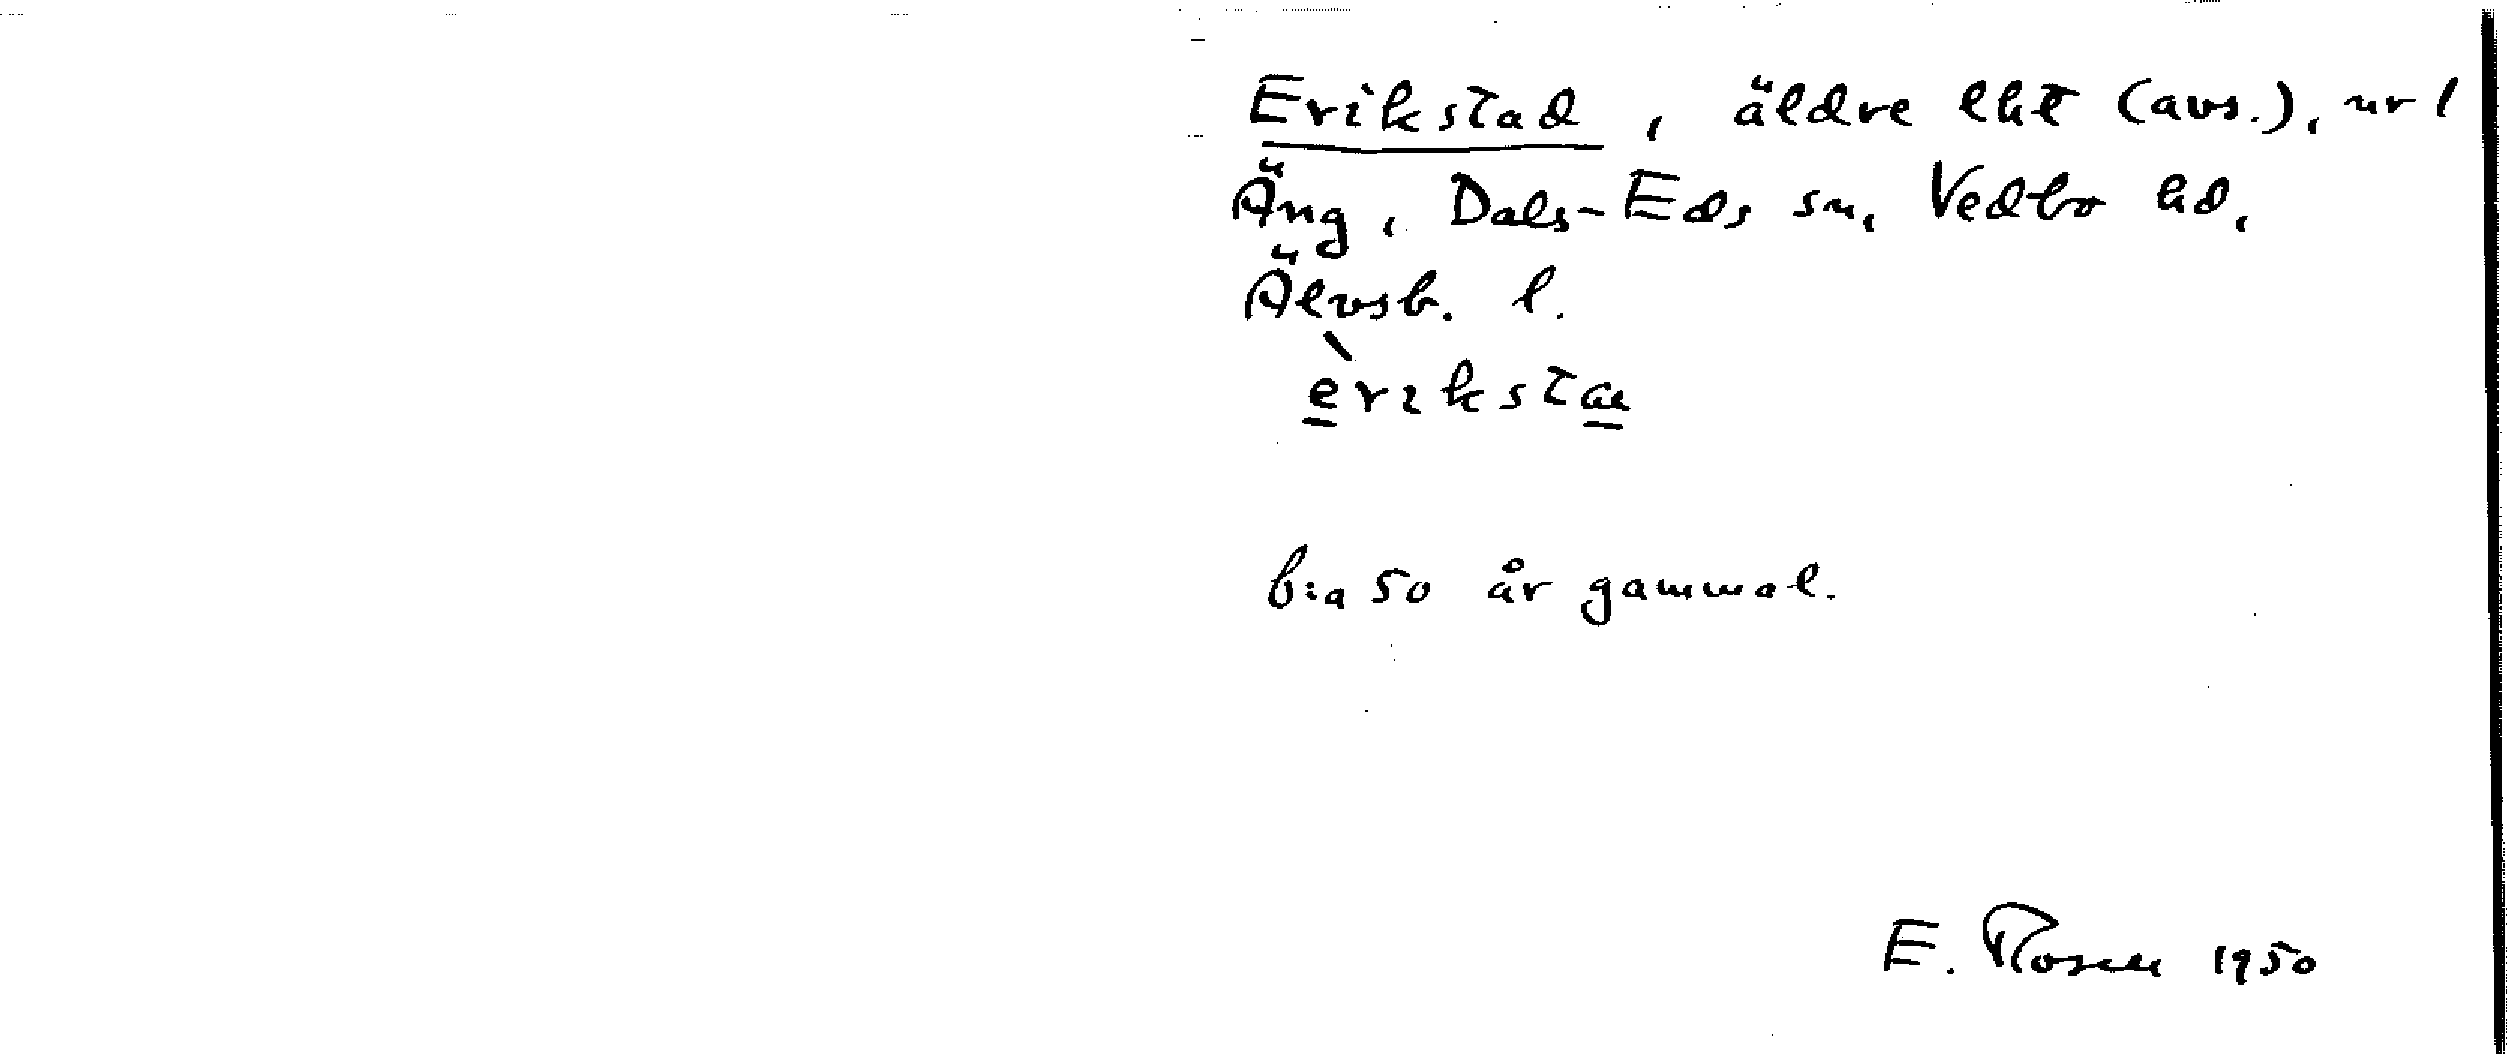 Erikstad, äldre lht (avs.), nr 1
Äng, Dals-Eds sn, Vedbo hd,
Älvsb. l.
èriksta
b:a 50 år gammal.
E. Rosen 1950